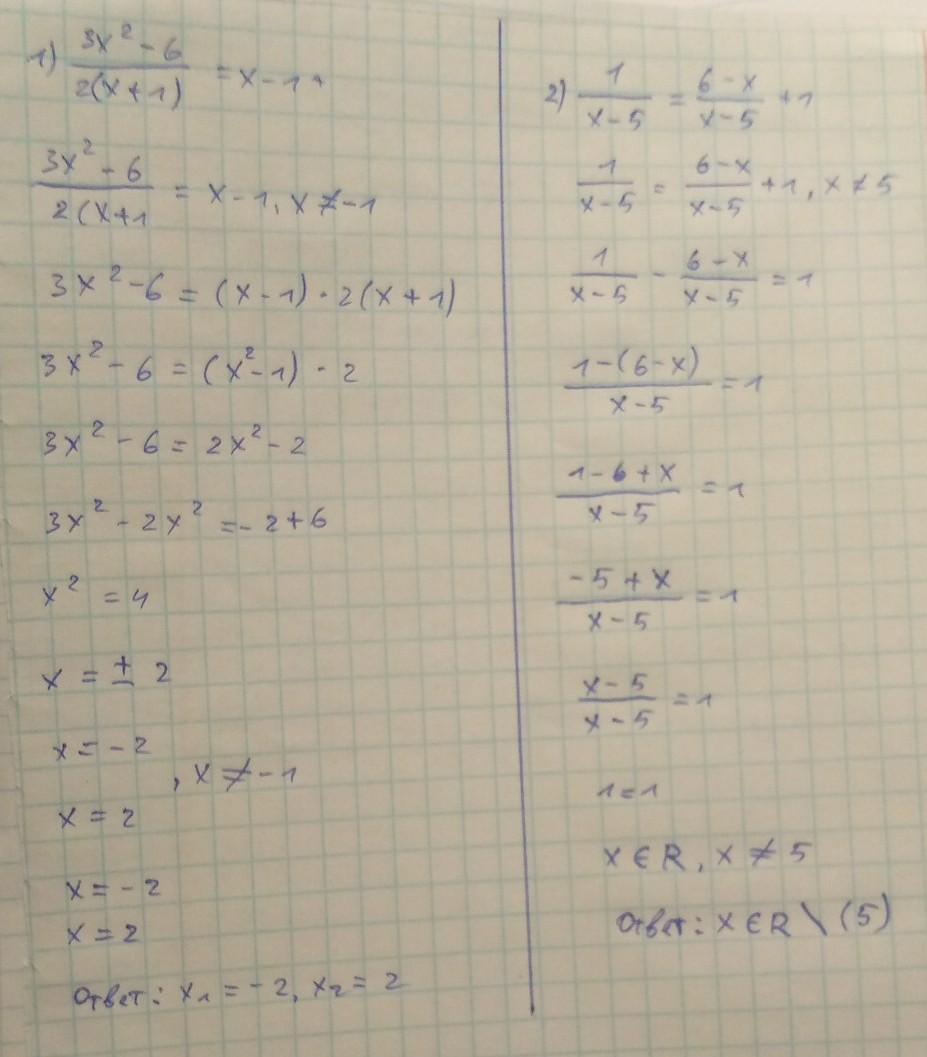 1) (3x² - 6)/(2(x+1)) = x - 1
(3x² - 6)/(2(x+1 = x - 1, x ≠ -1
3x² - 6 = (x - 1) · 2(x + 1)
3x² - 6 = (x² - 1) · 2
3x² - 6 = 2x² - 2
3x² - 2x² = - 2 + 6
x² = 4
x = ± 2
x = - 2
, x ≠ - 1
x = 2
x = - 2
x = 2
Ответ: x₁ = - 2, x₂ = 2
2) 1/(x-5) = (6-x)/(x-5) + 1
1/(x-5) = (6-x)/(x-5) + 1, x ≠ 5
1/(x-5) - (6-x)/(x-5) = 1
(1-(6-x))/(x-5) = 1
(1-6+x)/(x-5) = 1
(-5+x)/(x-5) = 1
(x-5)/(x-5) = 1
1 = 1
x ∈ R, x ≠ 5
Ответ: x ∈ R \ (5)